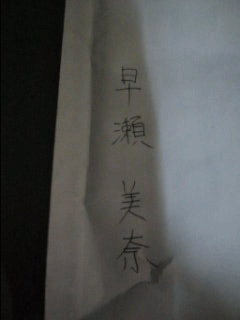 早瀬 美奈